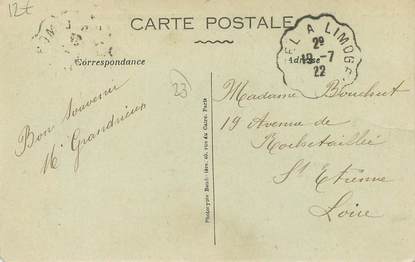 12€
CARTE POSTALE
Correspondance
Adresse
EL A LIMOGE
2º
19-7
22
23
Bon Souvenir
M. Grandrieux
Madame Bouchut
19 Avenue de
Rochetaillée
St Etienne
Loire
Phototypie Baudinière, 46, rue du Caire, Paris